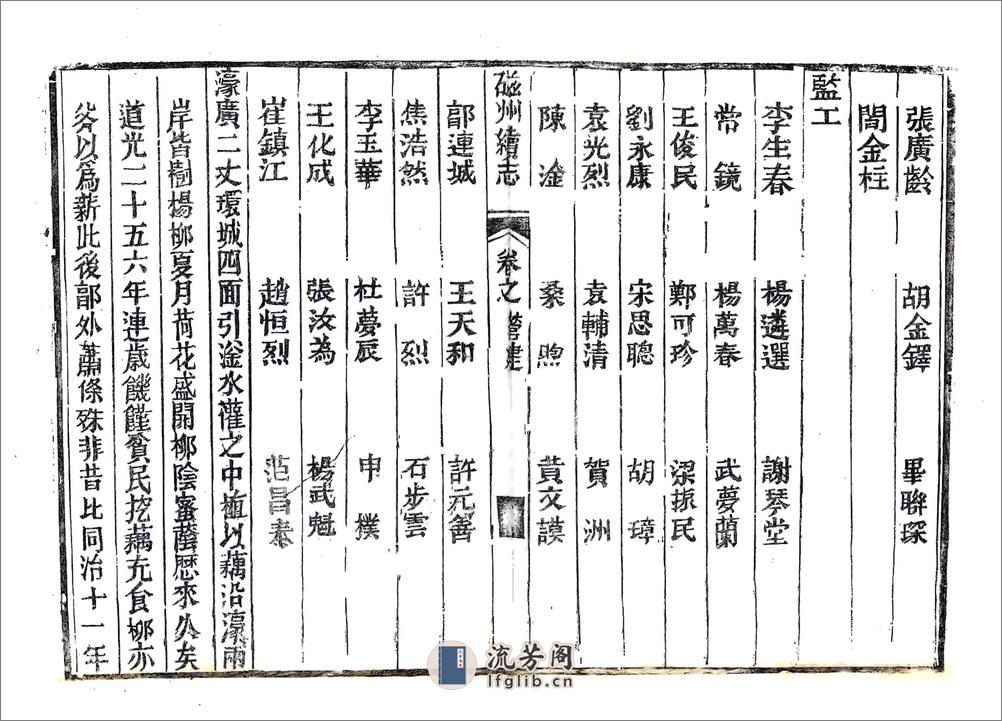 張廣齡 胡金鐸 畢聯琛
閻金柱
監工
李生春 楊遴選 謝琴堂
常鏡 楊萬春 武夢蘭
王俊民 鄭可珍 梁振民
劉永康 宋思聰 胡璋
袁光烈 袁輔清 賀洲
陳淦 桑煦 黃文謨
磁州續志 卷之 營建
郭連城 王天和 許元善
焦浩然 許烈 石步雲
李玉華 杜夢辰 申樸
王化成 張汝為 楊武魁
崔鎮江 趙恒烈 范昌泰
濠廣二丈環城四面引滏水灌之中植以藕沿濠兩
岸皆樹楊柳夏月荷花盛開柳陰蜜蔭歷來久矣
道光二十五六年連歲饑饉貧民挖藕充食柳亦
斧以爲薪此後郭外蕭條殊非昔比同治十一年
流芳阁
lfglib.cn